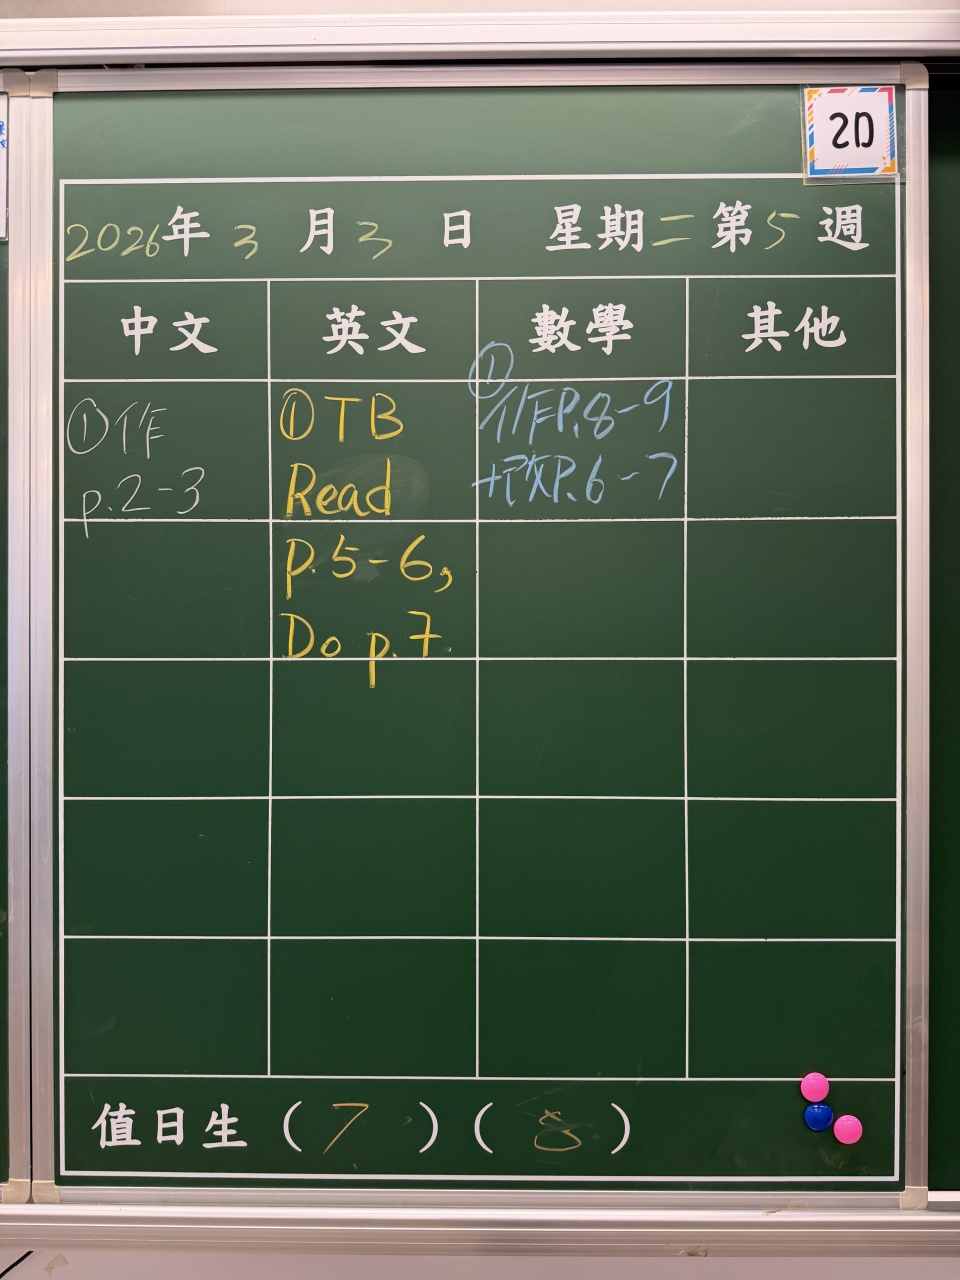 2D
2026年3月3日 星期二第5週
中文 英文 數學 其他
①作
p.2-3
①TB
Read
p.5-6,
Do p.7.
①
作P.8-9
+改P.6-7
值日生(7)(8)